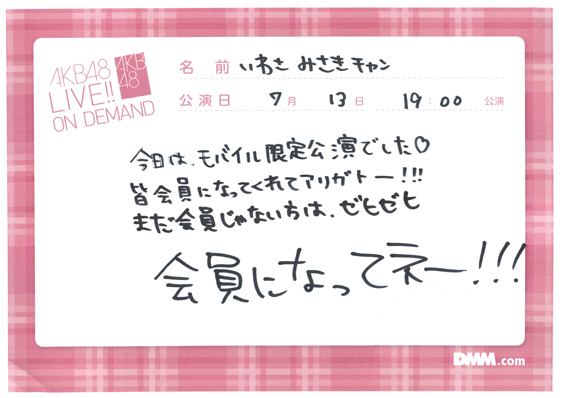 AKB48
LIVE!!
ON DEMAND
AKB
48
名 前 いわさ みさきチャン
公演日 7月 13日 19:00 公演
今日は、モバイル限定公演でした♡
皆会員になってくれてアリガトー!!!
まだ会員じゃない方は、ゼヒゼヒ
会員になってネー!!!
DMM.com